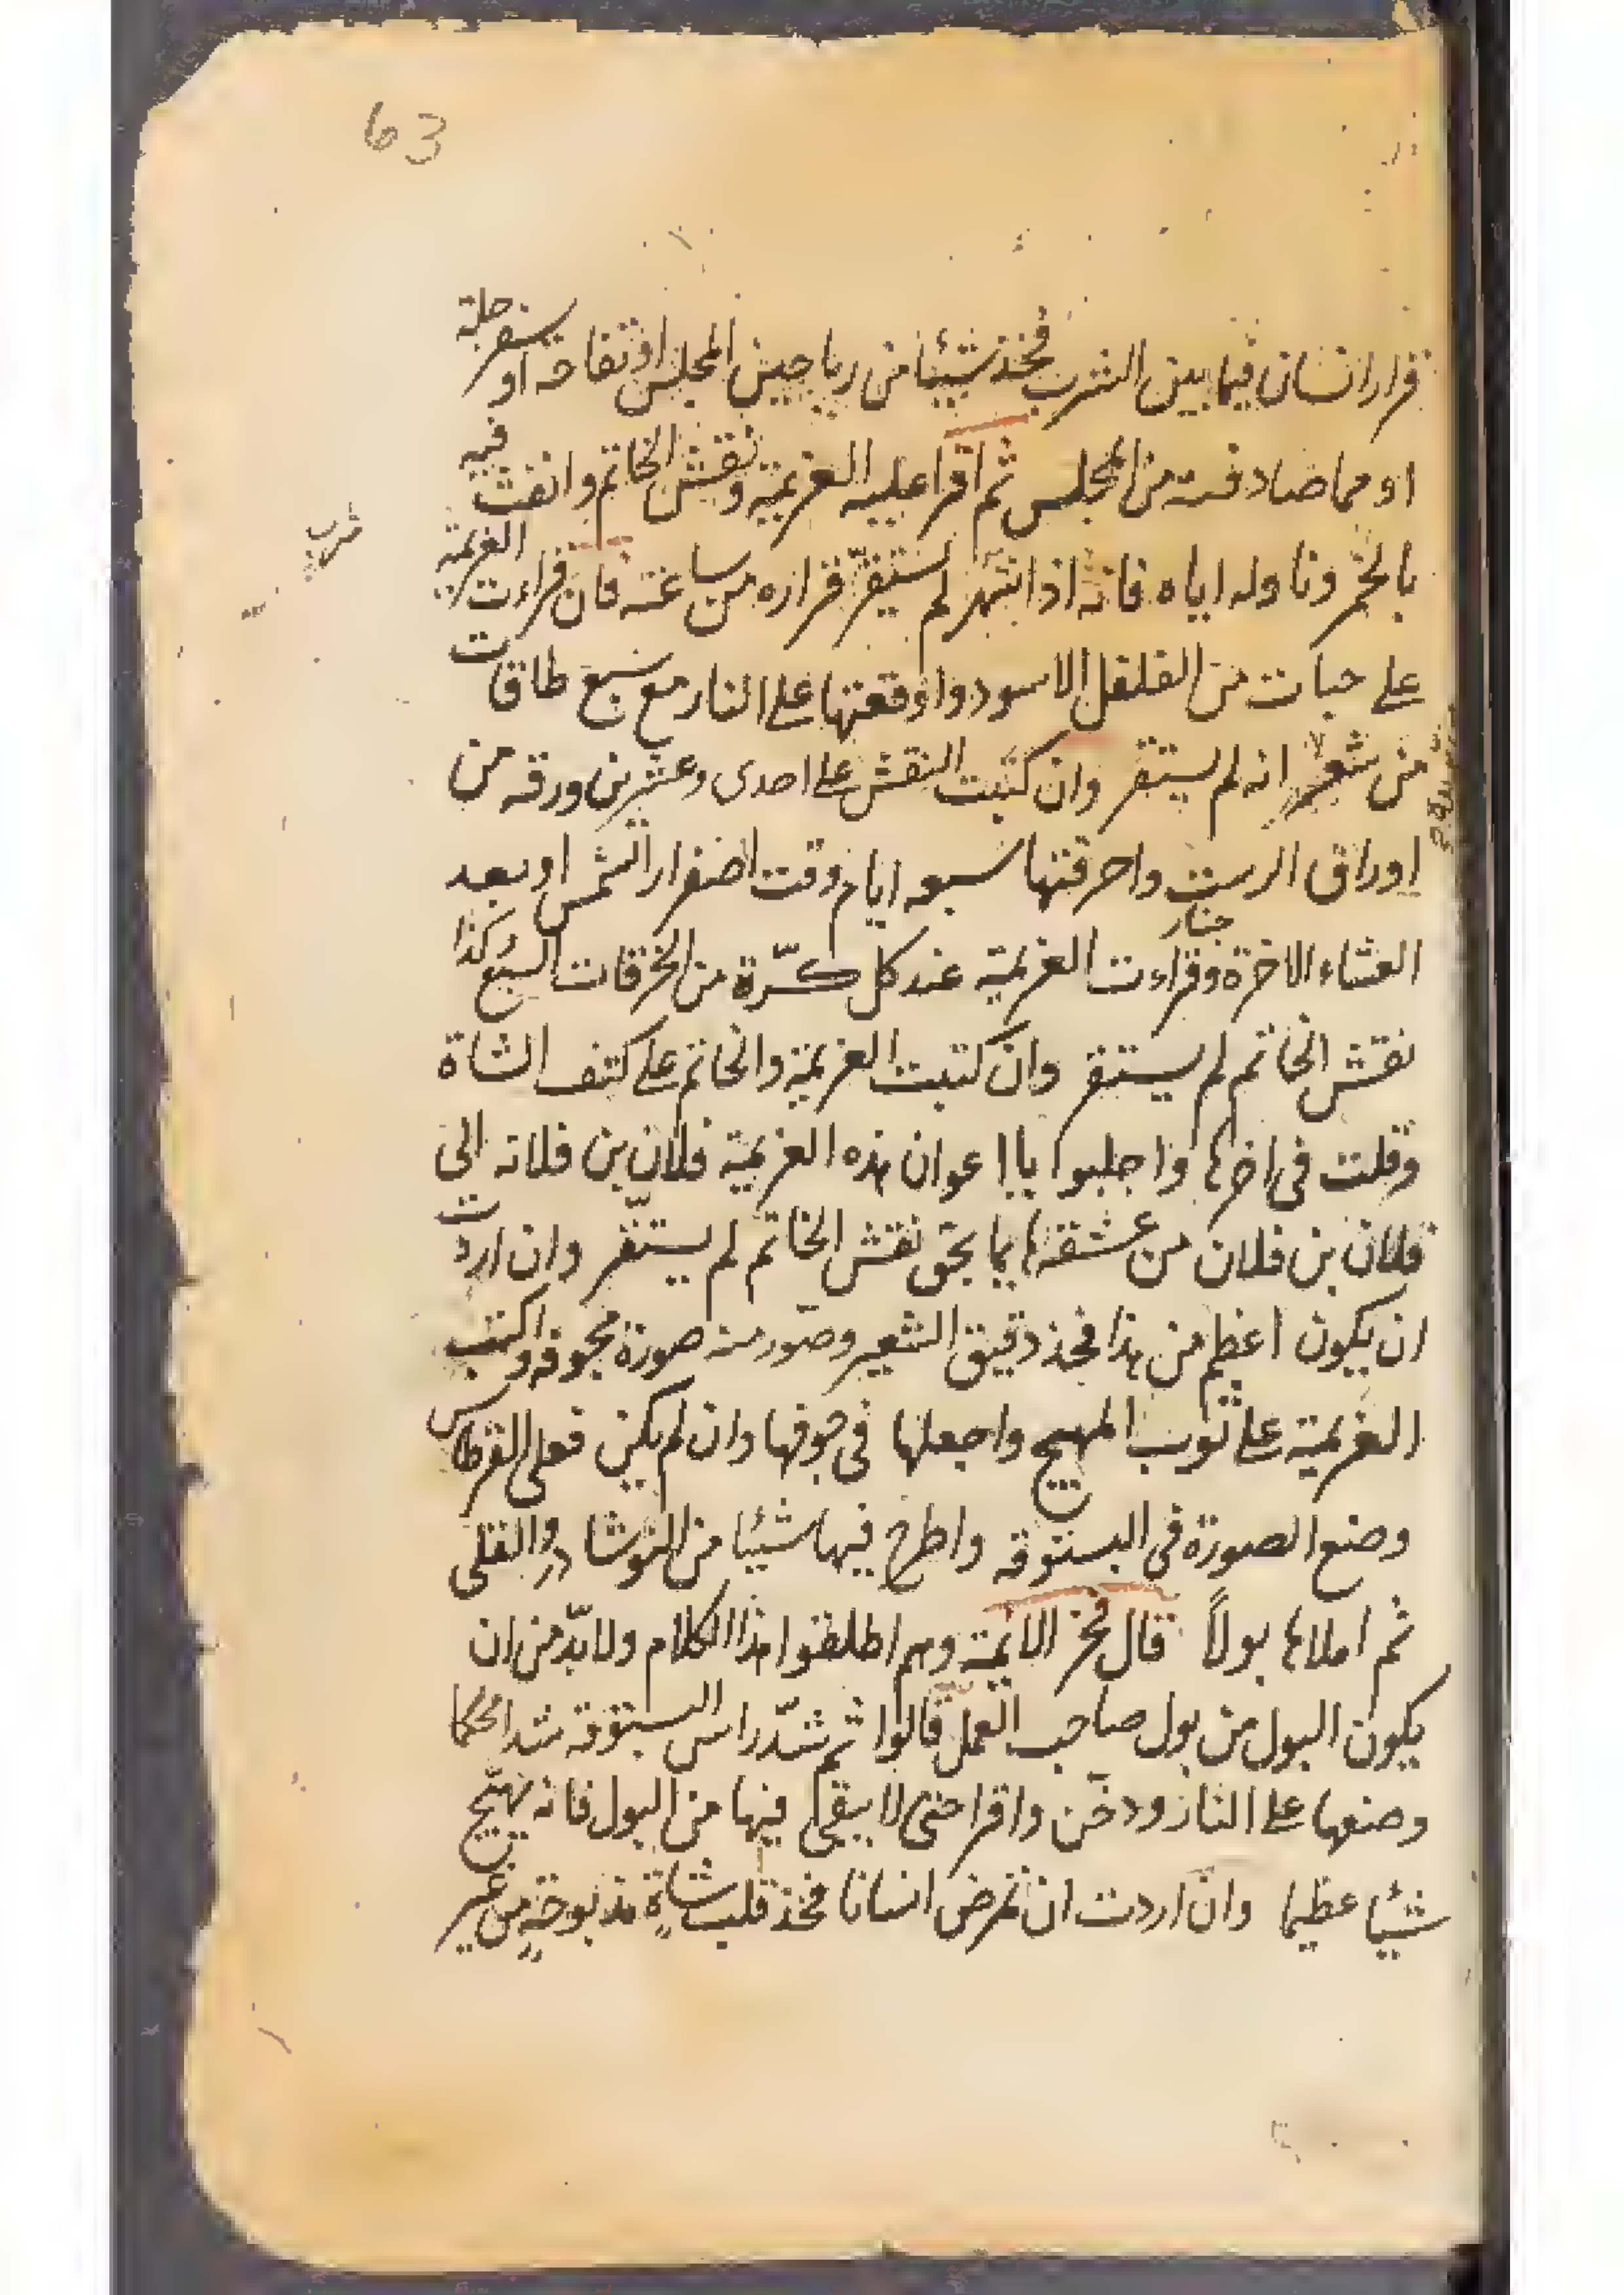 63
قرار انسان فيما بين الشرب فخذ شيئا من رياحين المجلس او تفاحه او سفرجلة
او مما صادفته من المجلس ثم اقرا عليه العزيمة ونقش الخاتم وانفث فيه
شرب
بالخمر وناوله اياه فانه اذا اشتهر لم يستقر قراره من ساعته فان قراءت العزيمة
على حبات من الفلفل الاسود واوقعتها على النار مع سبع طاقات
من شعر انه لم يستقر وان كتبت النقش على احدى وعشرين ورقه من
اوراق الرست واحرقتها سبعه ايام وقت اصفرار الشمس او بعد
جنار
العشاء الاخرة وقراءت العزيمة عند كل كرّة من الخرقات السبع وكذا
نقش الخاتم لم يستقر وان كتبت العزيمة والخاتم على كتف الشاة
وقلت فى اخرها واجلبوا يا اعوان هذه العزيمة فلان بن فلانه الى
فلان بن فلان من عشقها بما بحق نقش الخاتم لم يستقر وان اردت
ان يكون اعظم من هذا فخذ دقيق الشعير وصوّر منه صورة مجوفه واكتب
العزيمة على ثوب المهيج واجعلها فى جوفها وان لم يكن فعلى القرطاس
وضع الصورة فى البستوقه واطرح فيها شيئا من النوشادر والقلى
ثم املاها بولاً قال فخر الايمة وهم اطلقوا هذا الكلام ولا بدّ من ان
يكون البول من بول صاحب العمل قالوا ثم شدّ راس البستوقه شدا محكما
وضعها على النار ودخّن واقرا حتى لا يبقى فيها من البول فانه يهيّج
شيئا عظيما وان اردت ان تمرض انسانا فخذ قلب شاةٍ مذبوحةٍ من غير